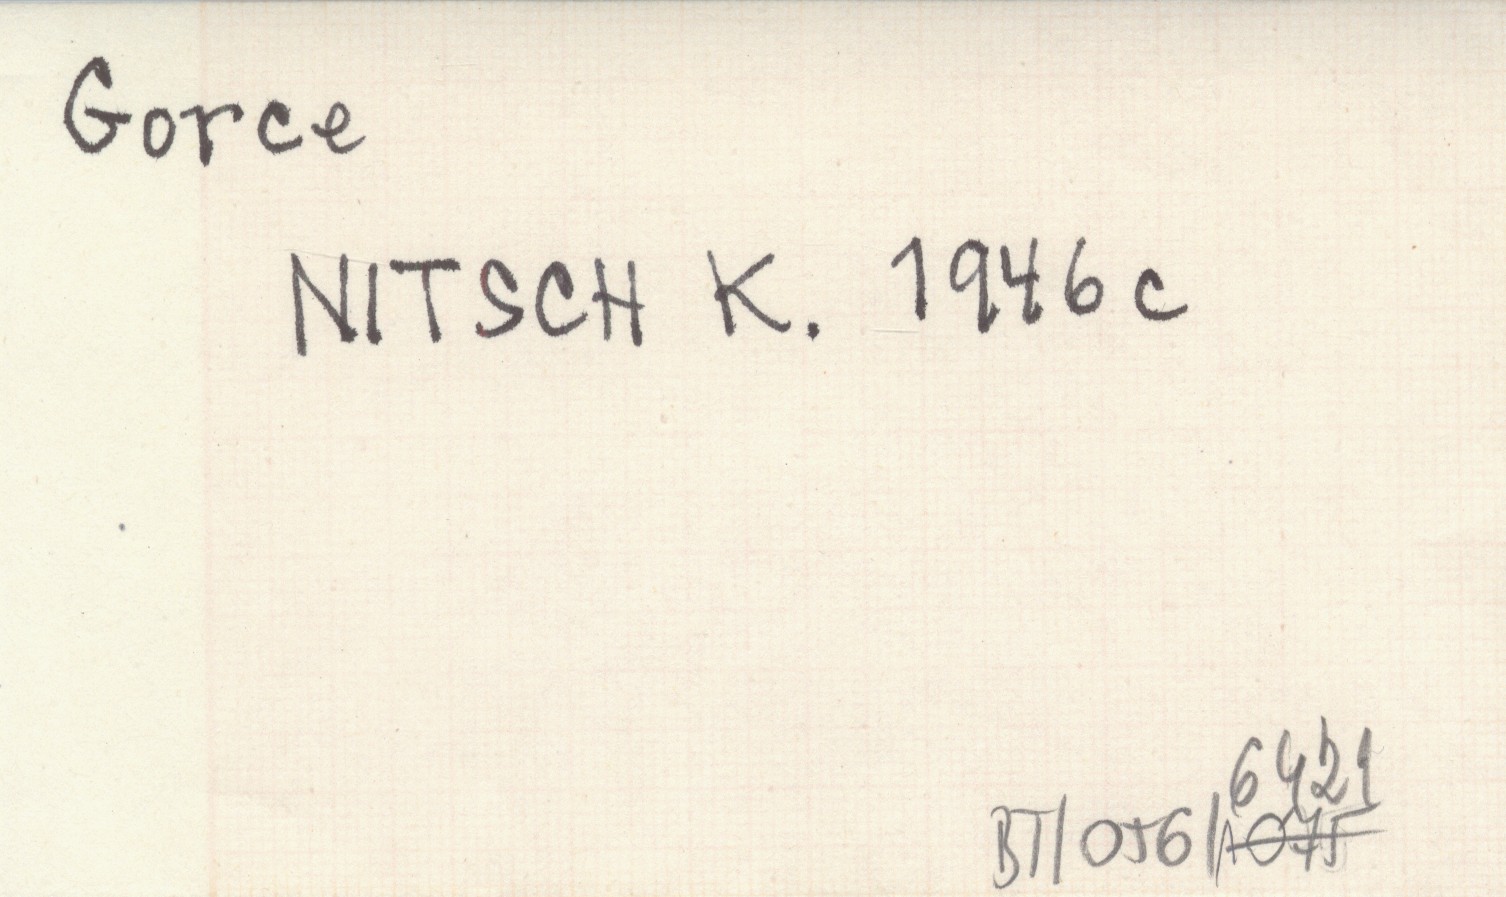 Gorce
NITSCH K. 1946c
6421
BT/056/1075